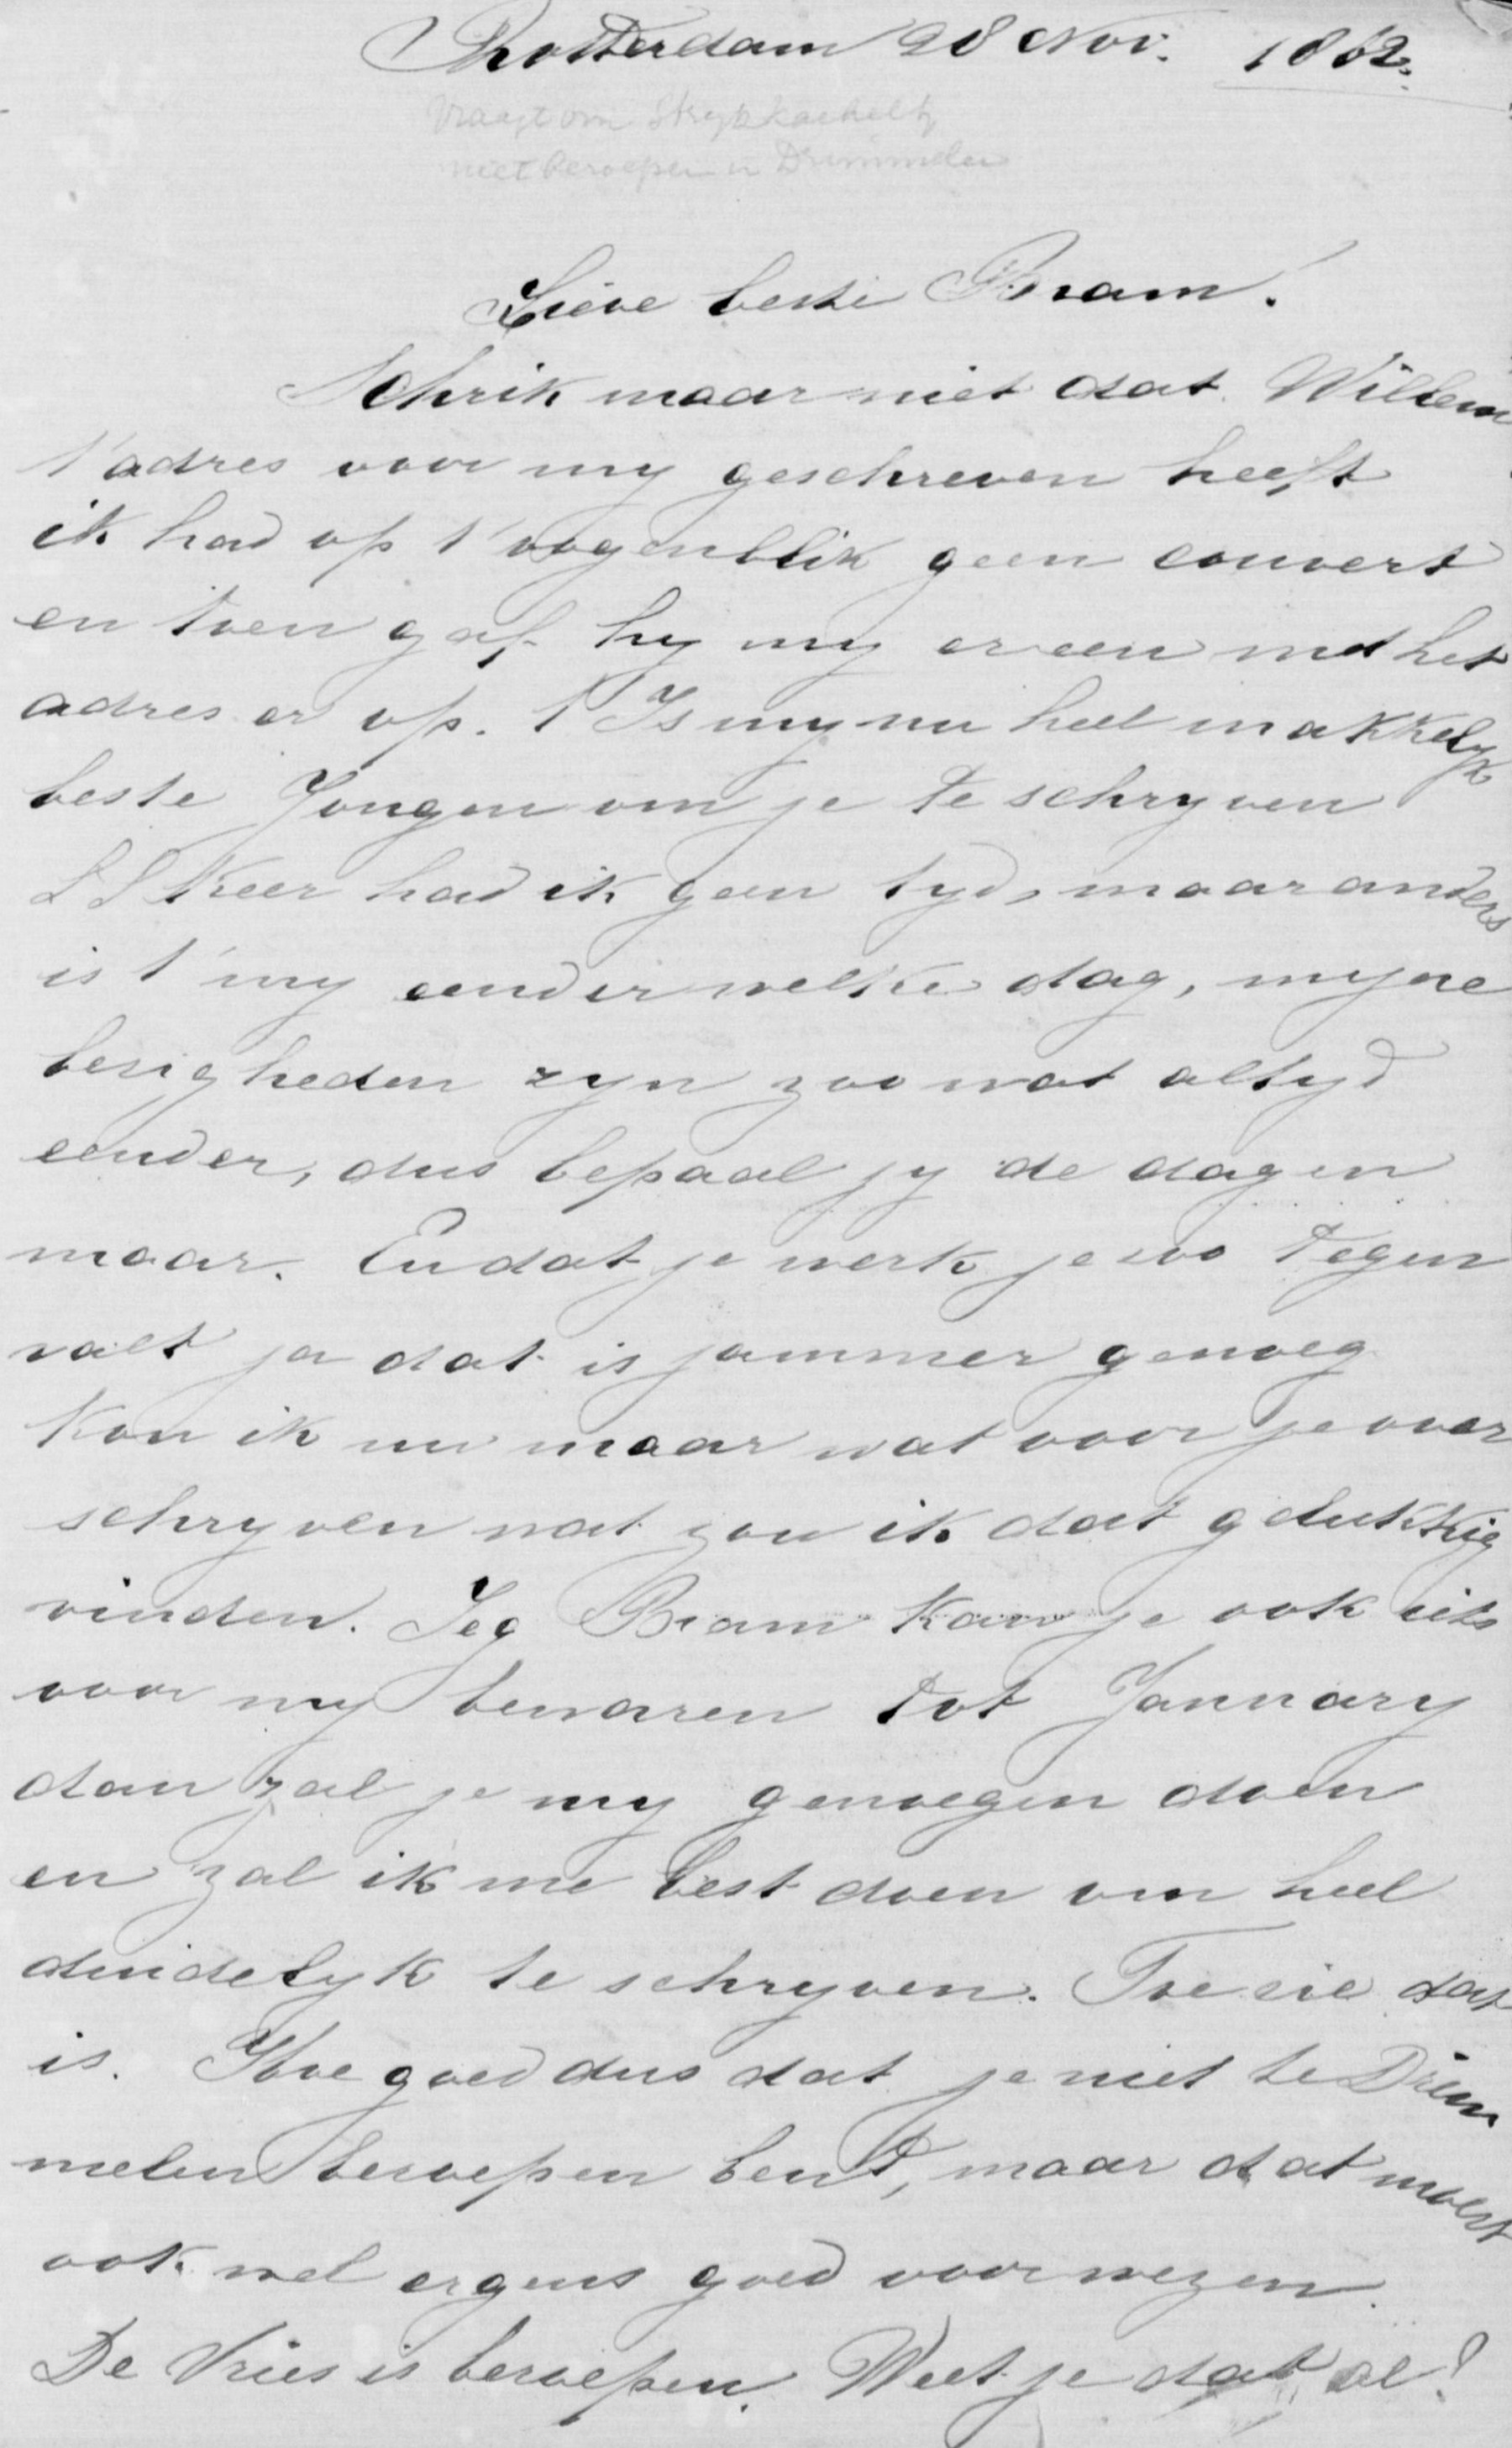 Rotterdam 28 Nov. 1862.
Vraagt om
niet beroepen in Drimmelen
Lieve beste Bram!
Schrik maar niet dat Willem
t'adres voor my geschreven heeft
ik had op t'oogenblik geen couvert
en toen gaf hy my er een met het
adres er op. t'Is my nu heel makkelyk
beste Jongen om je te schryven
LL Keer had ik geen tyd, maar anders
is t'my eender welke dag, myne
besigheden zyn zoo wat altyd
eender, dus bepaal jy de dagen
maar. En dat je werk je zoo tegen
valt ja dat is jammer genoeg
Kon ik nu maar wat voor je over
schryven wat zou ik dat gelukkig
vinden. Zeg Bram Kan je ook iets
voor my bewaren tot January
dan zal je my genoegen doen
en zal ik me best doen om heel
duidelyk te schryven. Toe zie dat
is. Hoe goed dus dat je niet te Drim
melen beroepen bent, maar dat moest
ook wel ergens goed voor wezen.
De Vries is beroepen. Weet je dat al?